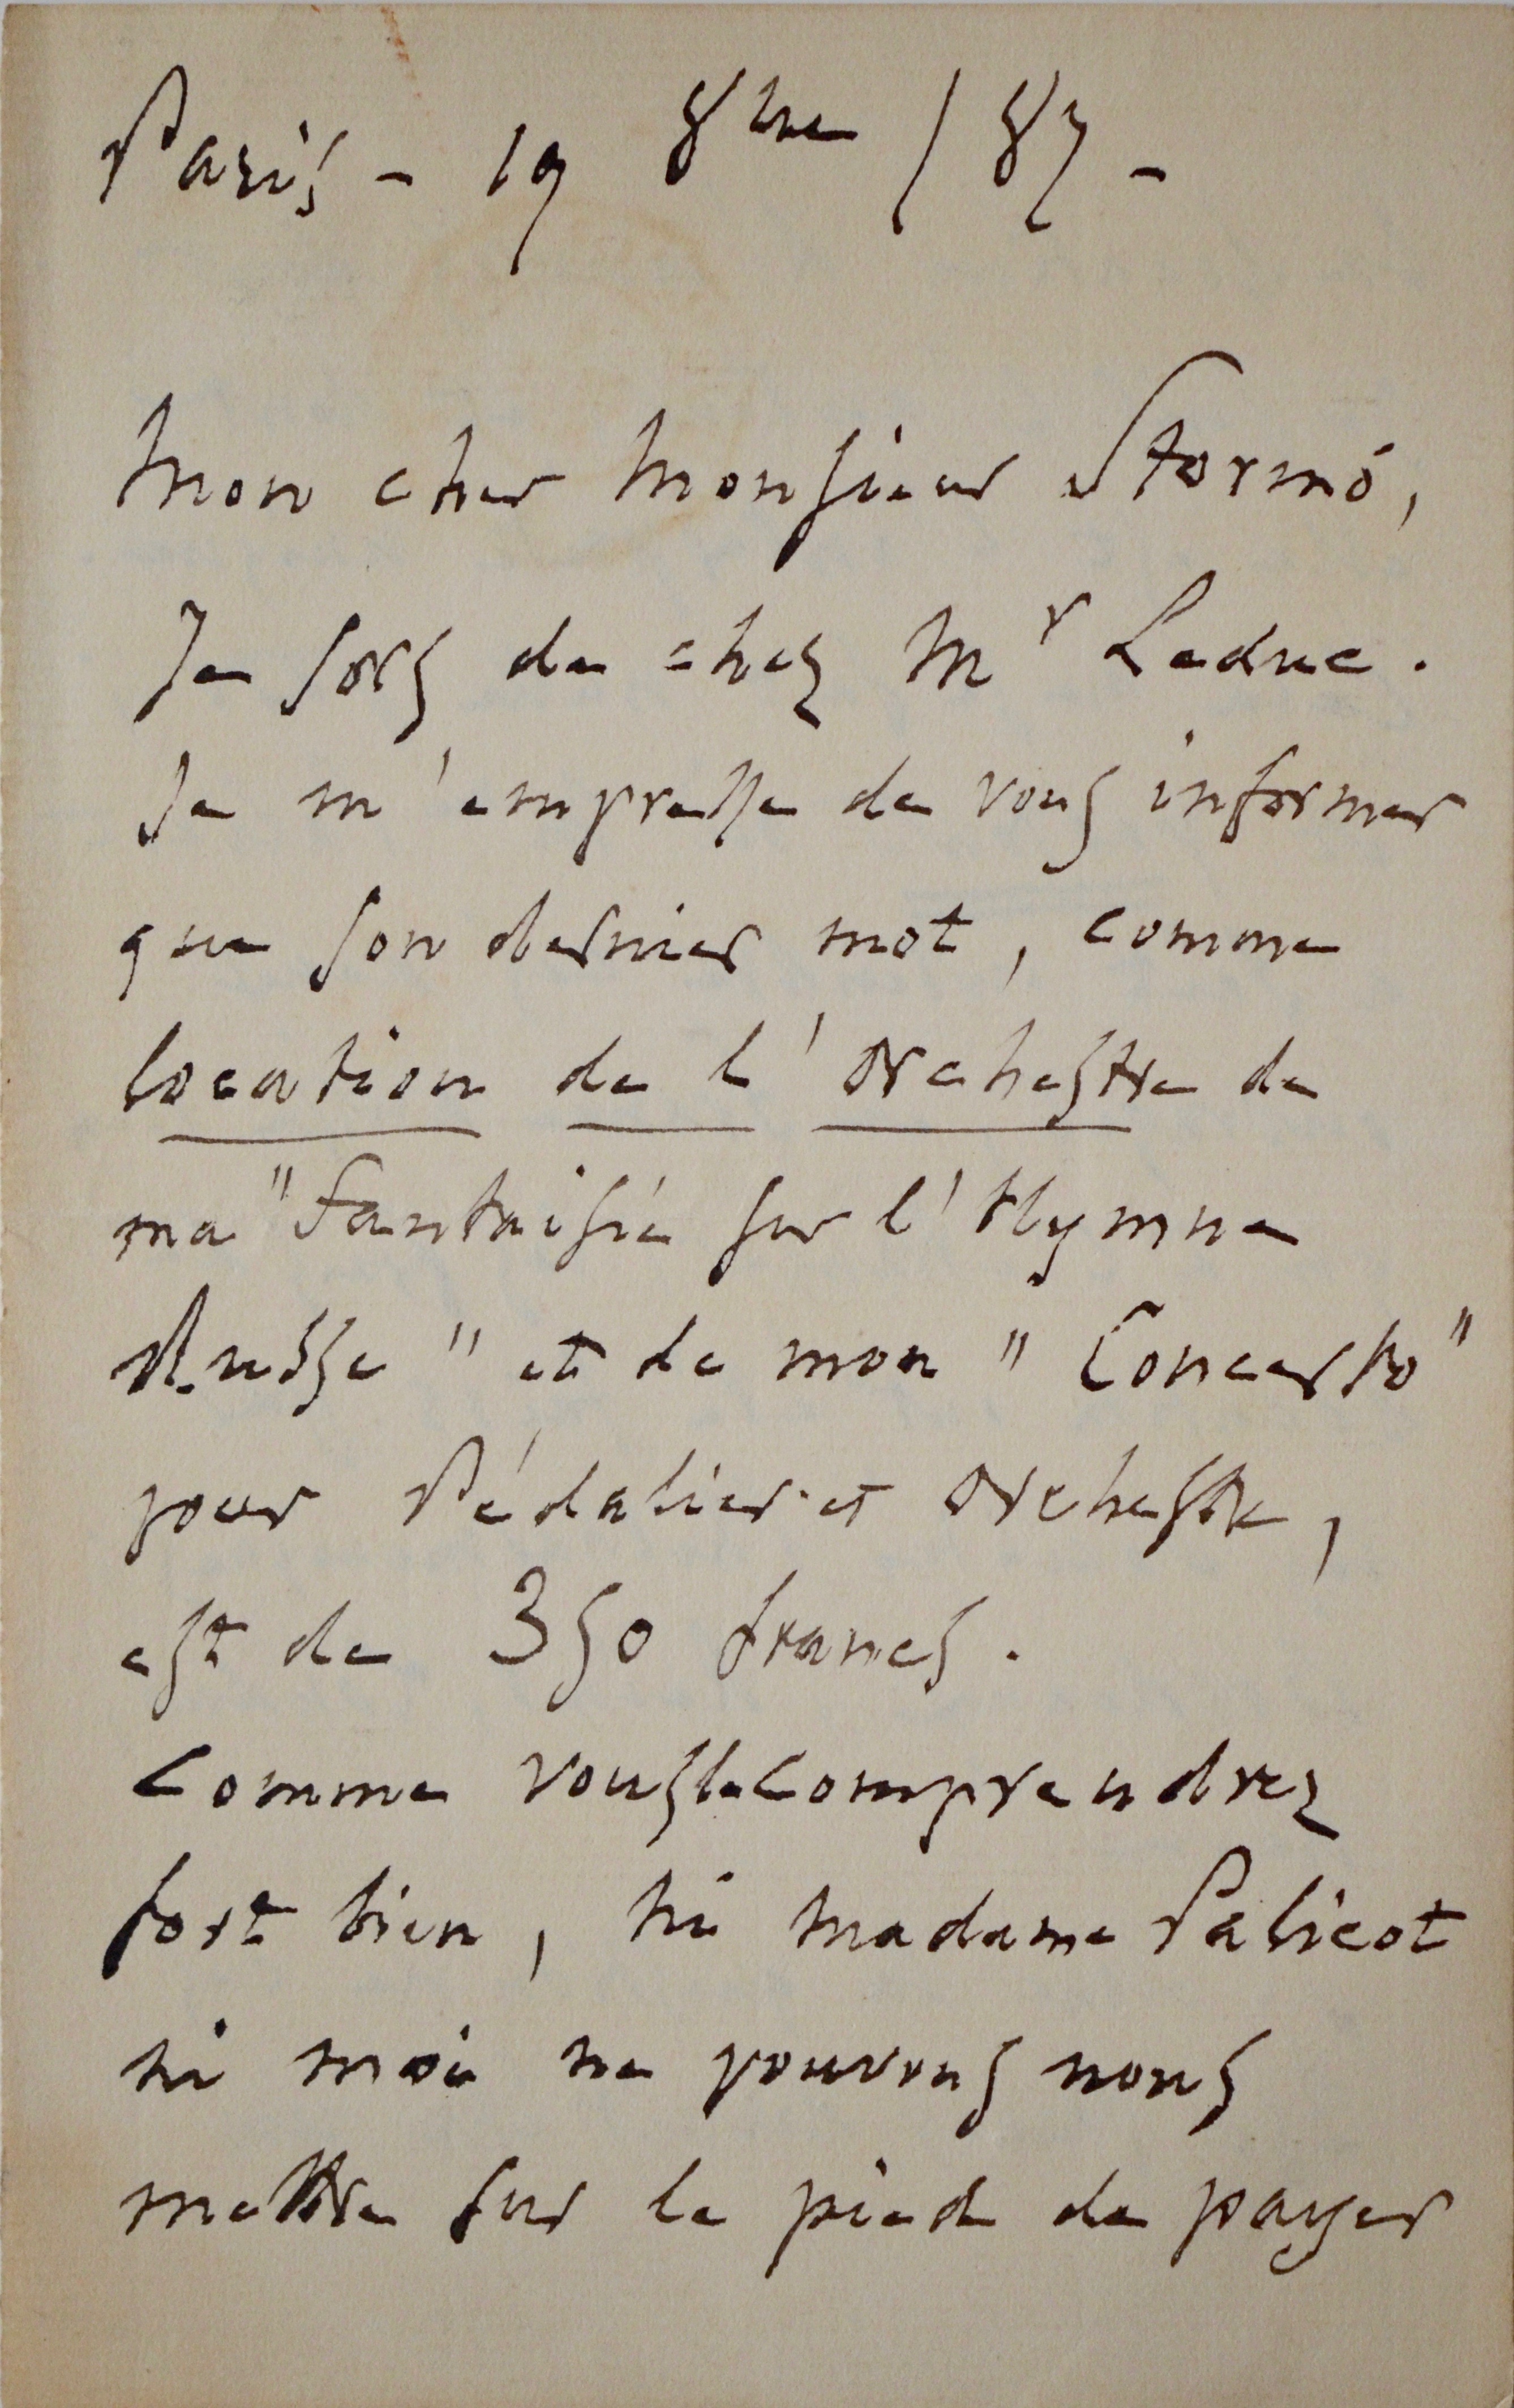 Paris - 19 8bre / 87 -
Mon cher Monsieur Stormó,
Je sors de chez Mr Leduc.
Je m'empresse de vous informer
que son dernier mot, comme
location de l'orchestre de
ma "Fantaisie sur l'Hymne
Russe" et de mon "Concerto"
pour Pédalier et orchestre,
est de 350 francs.
Comme vous le comprendrez
fort bien, ni Madame Palicot
ni moi ne pouvons nous
mettre sur le pied de payer